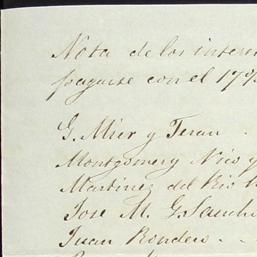 Nota de los interes
pagarse con el 17%
G. Mier y Teran .
Montgomery Nico y
Martinez del Rio
Jose M. G. Sancho
Juan Rondero . .